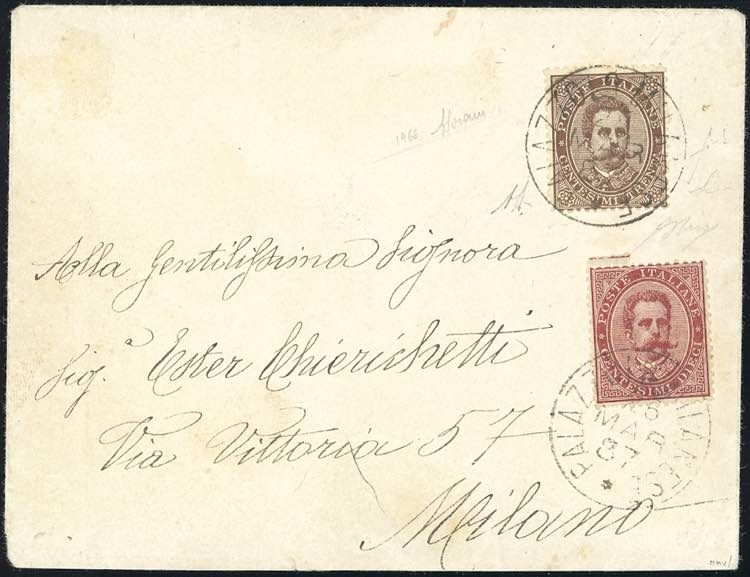 POSTE ITALIANE
CENTESIMI TRENTA
1966
Alla Gentilissima Signora
Sig.ª Ester Chierichetti
Via Vittoria 57
Milano
POSTE ITALIANE
CENTESIMI DIECI
MAR
87